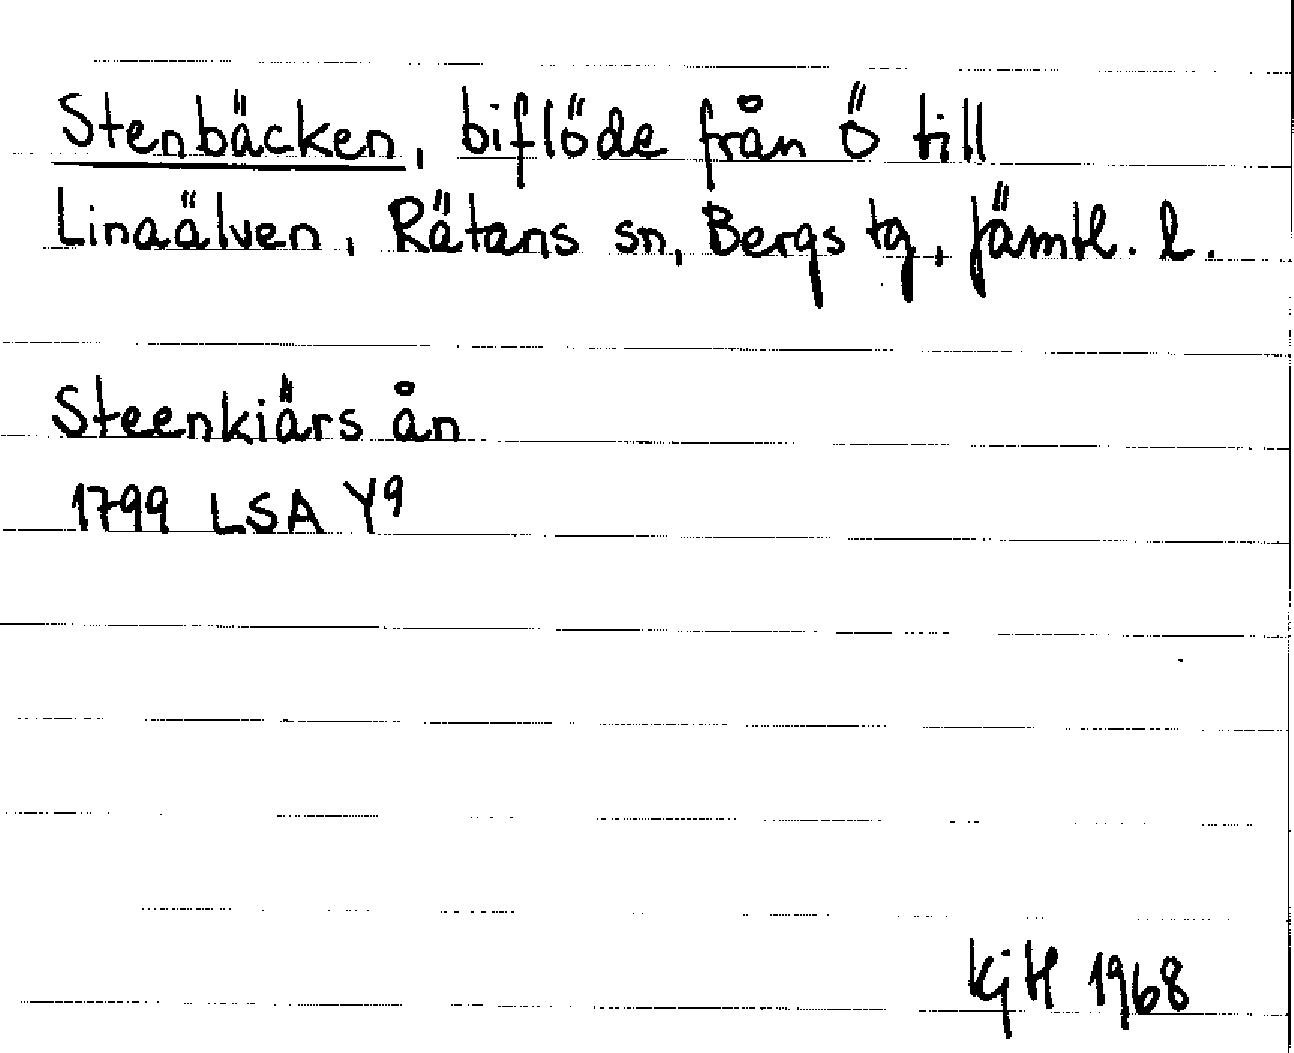 Stenbäcken, biflöde från Ö till
Linaälven, Rätans sn, Bergs tg, Jämtl. l.
Steenkiärs ån
1799 LSA Y9
KjH 1968